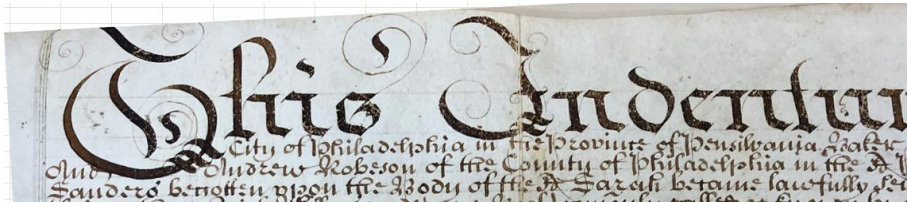 This Indentur
City of Philadelphia in the Province of Pensilvania Baker
And Andrew Robeson of the County of Philadelphia in the
Sanders begotten upon the Body of the Sarah became lawfully